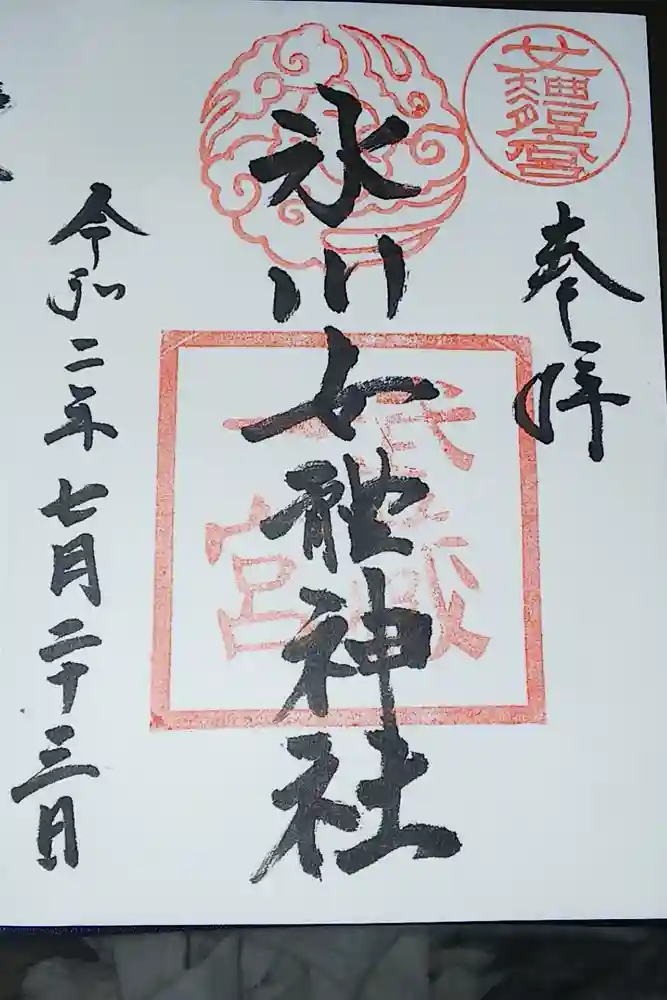 奉拝
氷川女體神社
武蔵
一宮
令和二年七月二十三日